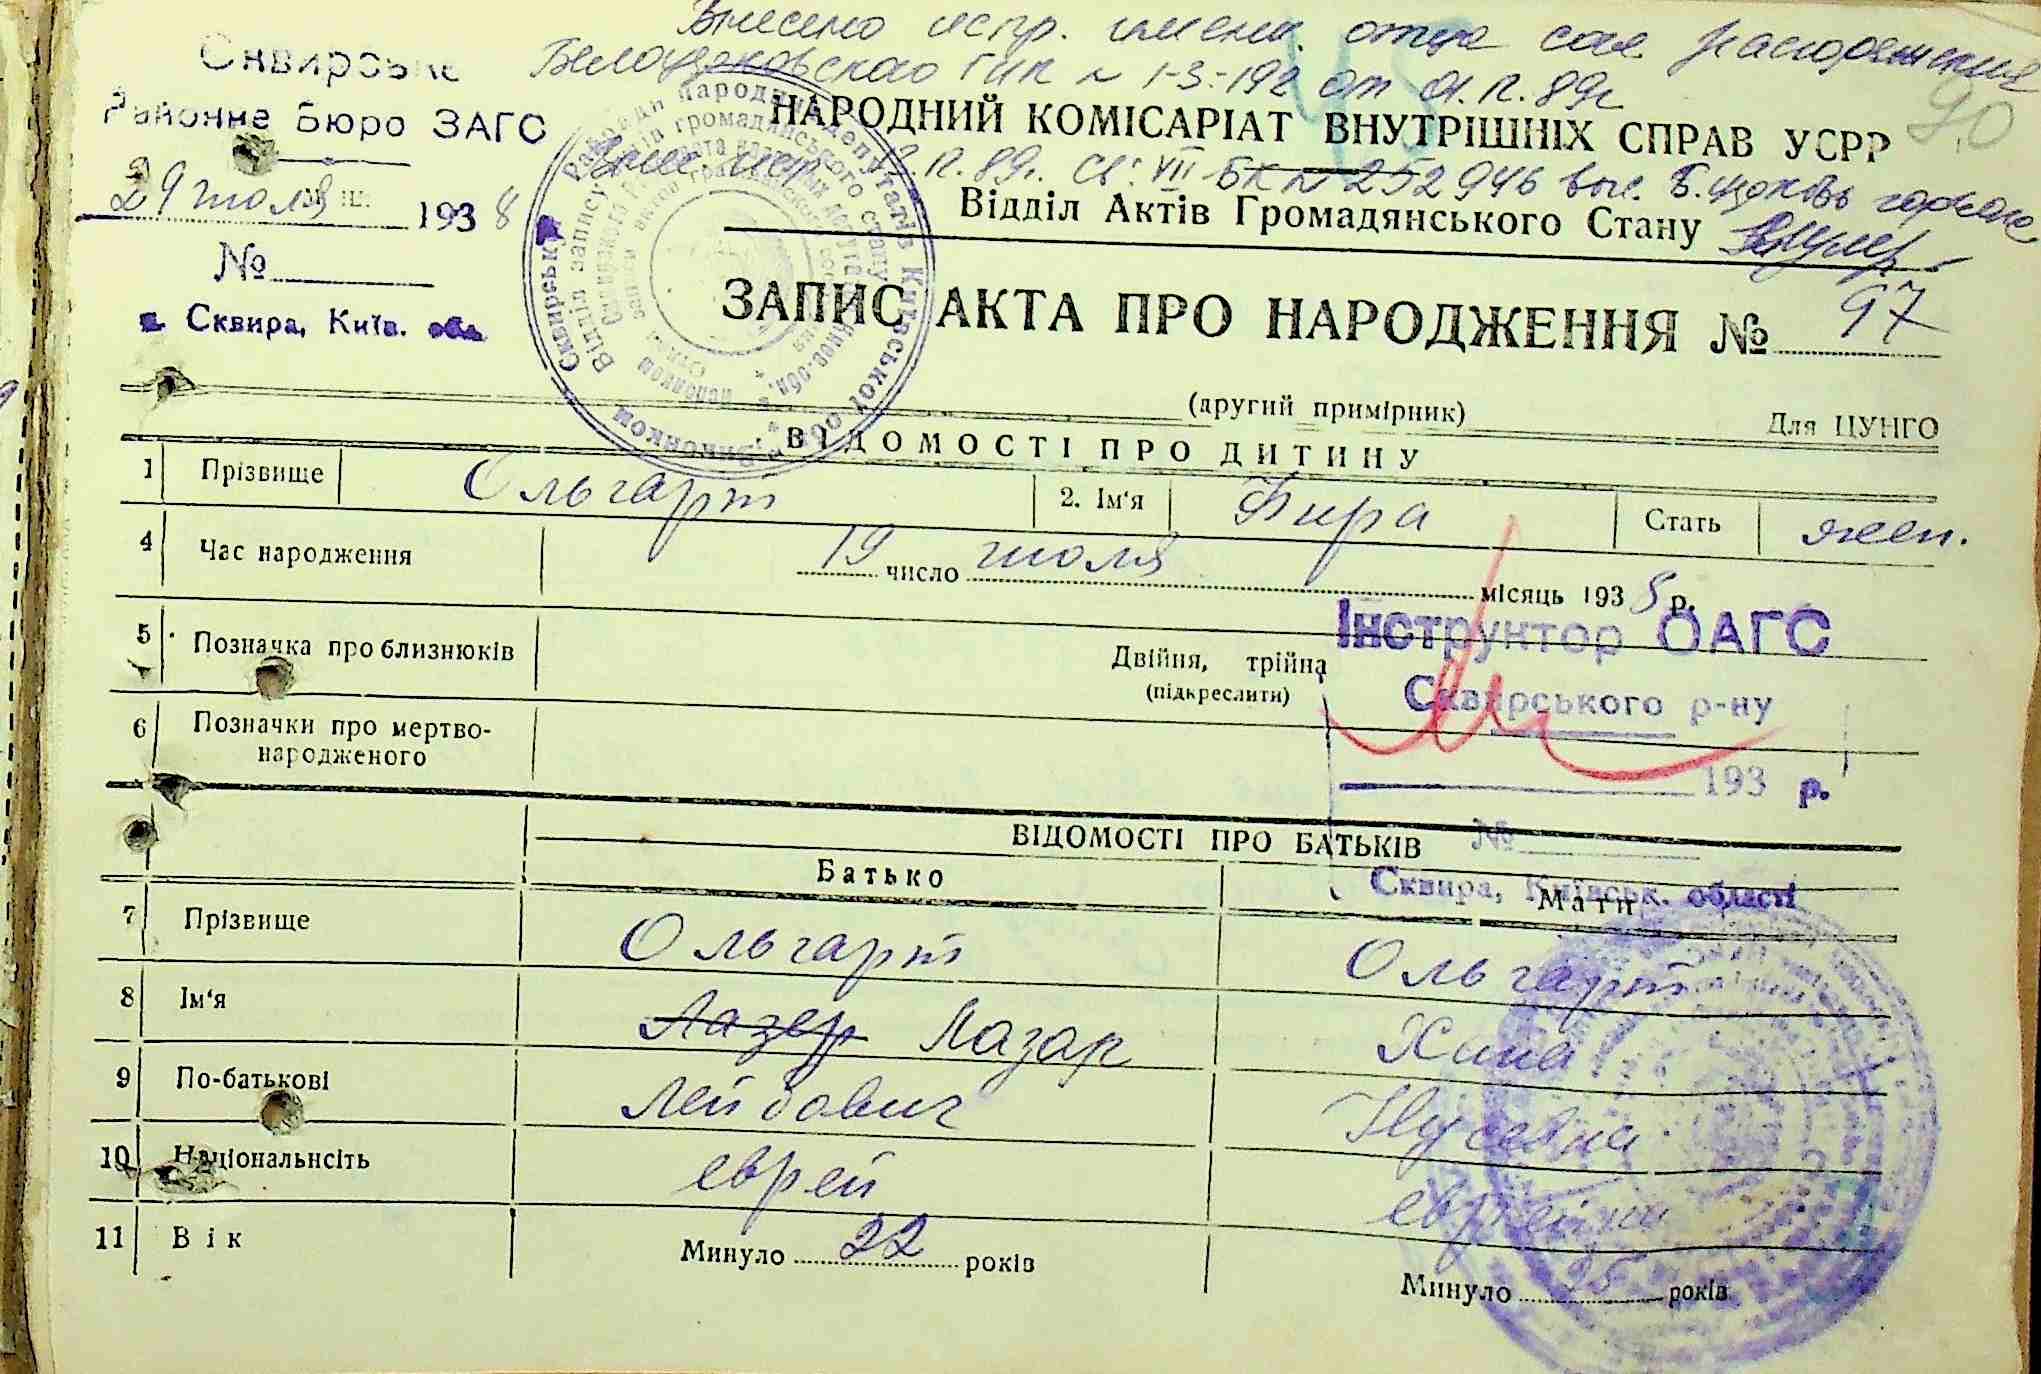 Внесено испр. имени отца
Белоцерковского ГИК № 1-3-192 от
90
Сквирське
Районне Бюро ЗАГС
29 июля 1938
№
м. Сквира, Київ. обл.
НАРОДНИЙ КОМІСАРІАТ ВНУТРІШНІХ СПРАВ УСРР
89г. св. VII БК № 252946 выс. Б.Церковь
Відділ Актів Громадянського Стану
ЗАПИС АКТА ПРО НАРОДЖЕННЯ № 97
(другий примірник)
Для ЦУНГО
ВІДОМОСТІ ПРО ДИТИНУ
1 Прізвище Ольгарт 2. Ім'я Фира Стать жен.
4 Час народження 19 число июля місяць 1938 р.
Інструктор ОАГС
5 Позначка про близнюків Двійня, трійня
(підкреслити)
Сквирського р-ну
6 Позначки про мертво-
народженого
193 р.
№
ВІДОМОСТІ ПРО БАТЬКІВ
Сквира, Київськ. області
Батько Мати
7 Прізвище Ольгарт Ольгарт
8 Ім'я Лазер Лазар Хина
9 По-батькові Лейбович Нусевна
10 Національність еврей еврейка
11 Вік Минуло 22 років Минуло 25 років